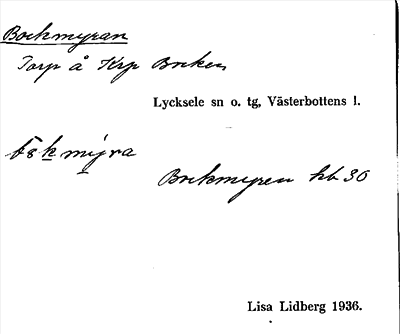 Bockmyran
Torp å Krp Brcken
Lycksele sn o. tg, Västerbottens l.
myra
Bockmyren kb 30
Lisa Lidberg 1936.